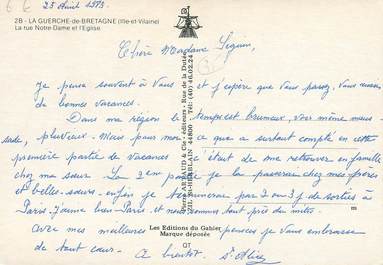 25 Août 1993.
2B - LA GUERCHE-DE-BRETAGNE (Ille-et-Vilaine)
La rue Notre-Dame et l'Eglise
Chère Madame Seguin,
Je pense souvent à vous et j'espère que vous passez, vous aussi
de bonnes vacances.
Dans ma région le temps est brumeux, voire même maus-
sade, pluvieux. Mais pour moi ce que a surtout compté en cette
première partie de vacances c'était de me retrouver en famille
chez ma sœur. La 2ème partie je la passerai chez mes frères
et belle-sœurs. enfin je terminerai par 2 ou 3 j. de sorties à
Paris. J'aime bien Paris et nous sommes tout près du métro.
Avec mes meilleures pensées je vous embrasse
de tout cœur. A bientôt.
Pierre ARTAUD & Cie - éditeurs - Rue de la Dutée
44800 Tél. (40) 46.02.24
Les Editions du Gabier
Marque déposée
QT